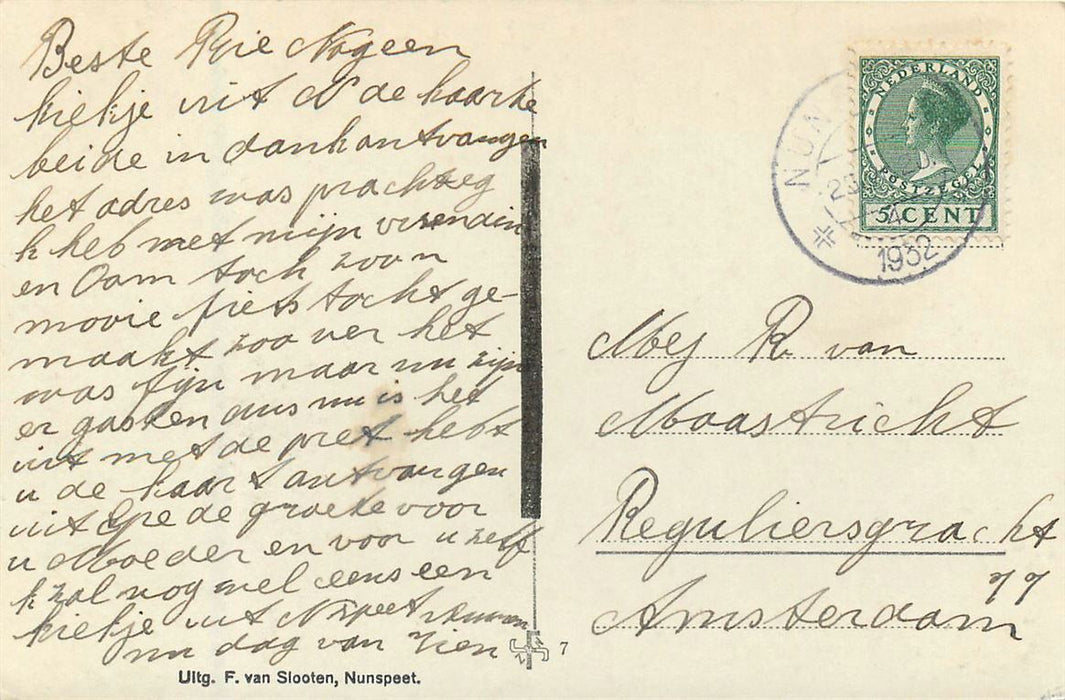 Beste Rie Nogeen
kiekje uit N de kaarte
beide in dank ontvangen
het adres was prachteg
k heb met mijn
en Oom toch zoo n
mooie fiets tocht ge-
maakt zoo ver het
was fijn maar nu zijn
er gasten dus nu is het
uit met de pret hebt
u de kaart ontvangen
uit Epe de groete voor
u Moeder en voor u zelf
k zal nog wel eens een
kiekje uit NSpeet
nu dag van Zien
Uitg. F. van Slooten, Nunspeet.
7
NEDERLAND
POSTZEGEL
5 CENT
NUN
1932
Mej R. van
Maastricht
Reguliersgracht
77
Amsterdam